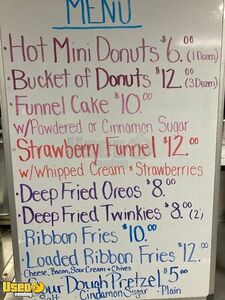 MENU
• Hot Mini Donuts $6.00 (1 Dozen)
• Bucket of Donuts $12.00 (3 Dozen)
• Funnel Cake $10.00
w/Powdered or Cinnamon Sugar
• Strawberry Funnel $12.00
w/Whipped Cream + Strawberries
• Deep Fried Oreos $8.00
• Deep Fried Twinkies $8.00 (2)
• Ribbon Fries $10.00
• Loaded Ribbon Fries $12.00
Cheese, Bacon, Sour Cream + Chives
Sour Dough Pretzel $5.00
Salt Cinnamon Sugar • Plain